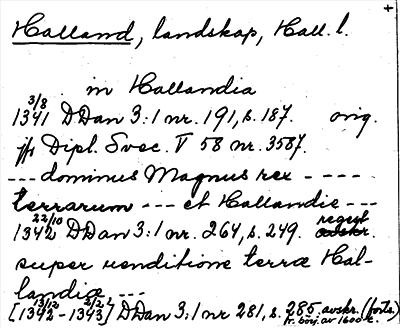 Halland, landskap, Hall. l.
in Hallandia
3/8
1341 DDan 3:1 nr. 191, s. 187. orig.
jfr Dipl. Svec. V 58 nr. 3587.
--- dominus Magnus rex ----
terrarum --- et Hallandie ---
22/10
1342 DDan 3:1 nr. 264, s. 249. regest
super venditione terræ Hal-
landiæ ---
[13/12 1342 - 2/2 1343] DDan 3:1 nr 281, s. 285 avskr. (forts.)
fr. börj. av 1600-t.